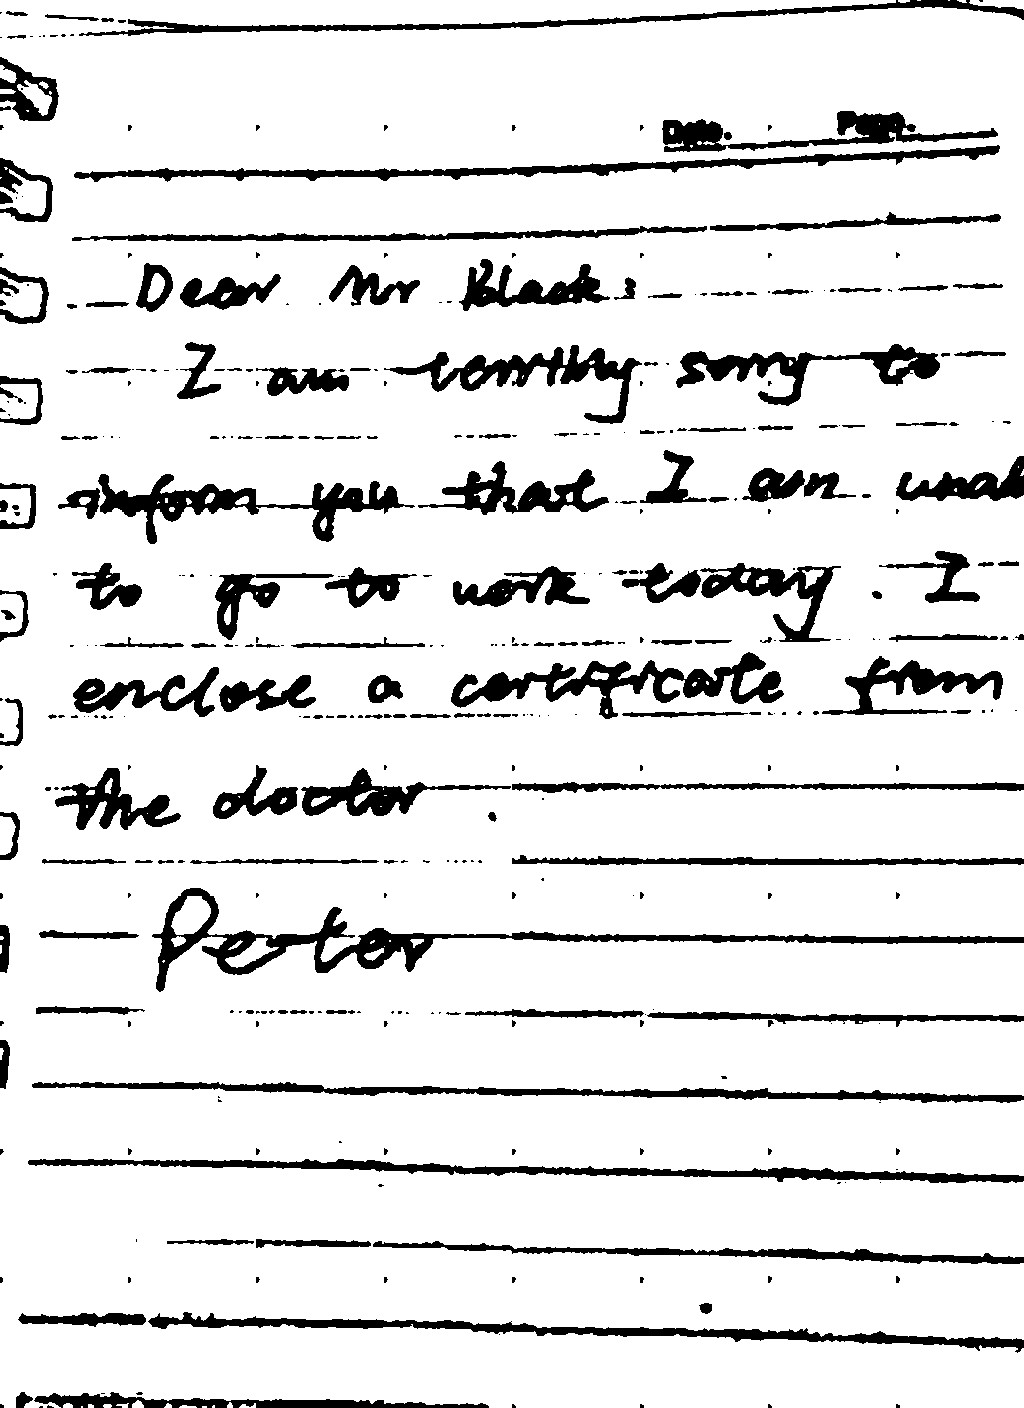 Date. Page.
Dear Mr Black:
I am terribly sorry to
inform you that I am unab
to go to work today. I
enclose a certificate from
the doctor.
Peter